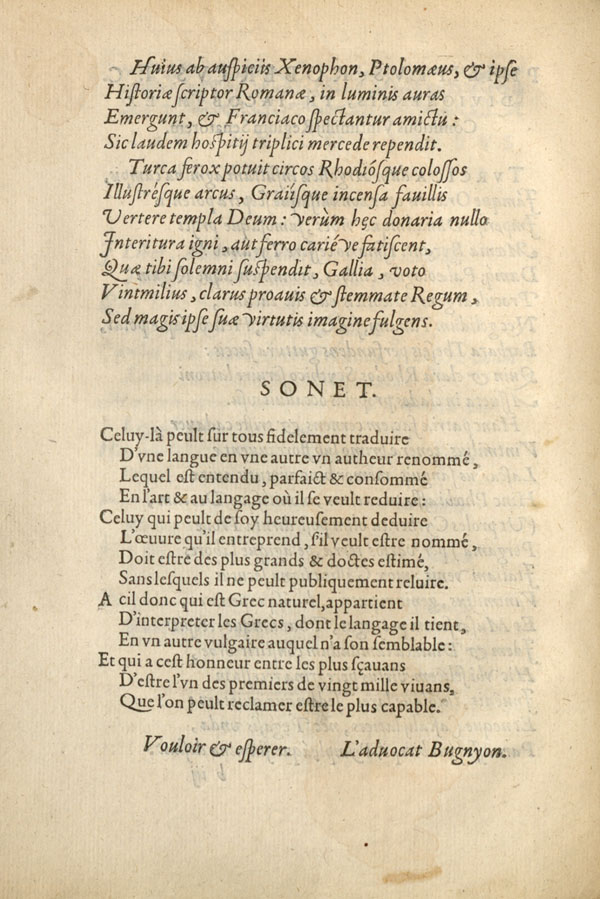 Huius ab auſpiciis Xenophon, Ptolomæus, & ipſe
Hiſtoriæ ſcriptor Romanæ, in luminis auras
Emergunt, & Franciaco ſpectantur amictu :
Sic laudem hoſpitij triplici mercede rependit.
Turca ferox potuit circos Rhodióſque coloſſos
Illuſtréſque arcus, Graiíſque incenſa fauillis
Vertere templa Deum : verùm hęc donaria nullo
Interitura igni, aut ferro cariéve fatiſcent,
Quæ tibi ſolemni ſuſpendit, Gallia, voto
Vintmilius, clarus proauis & ſtemmate Regum,
Sed magis ipſe ſuæ virtutis imagine fulgens.
SONET.
Celuy-là peult ſur tous fidelement traduire
D'vne langue en vne autre vn autheur renommé,
Lequel eſt entendu, parfaict & conſommé
En l'art & au langage où il ſe veult reduire :
Celuy qui peult de ſoy heureuſement deduire
L'œuure qu'il entreprend, ſ'il veult eſtre nommé,
Doit eſtre des plus grands & doctes eſtimé,
Sans leſquels il ne peult publiquement reluire.
A cil donc qui eſt Grec naturel, appartient
D'interpreter les Grecs, dont le langage il tient,
En vn autre vulgaire auquel n'a ſon ſemblable :
Et qui a ceſt honneur entre les plus ſçauans
D'eſtre l'vn des premiers de vingt mille viuans,
Que l'on peult reclamer eſtre le plus capable.
Vouloir & eſperer. L'aduocat Bugnyon.